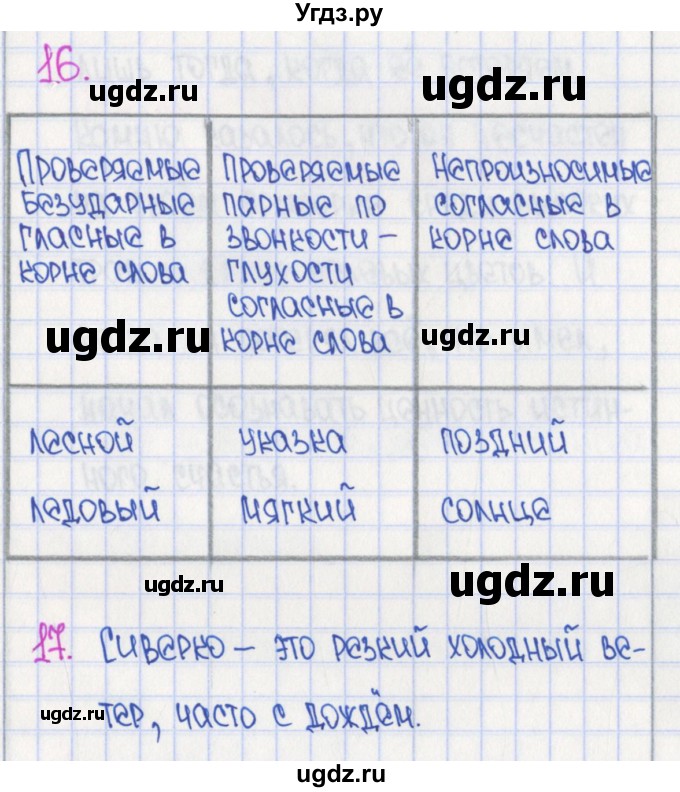 Угдз.ру
16.
ugdz.ru
ugdz.ru
Проверяемые
безударные
гласные в
корне слова
Проверяемые
парные по
звонкости –
глухости
согласные в
корне слова
Непроизносимые
согласные в
корне слова
ugdz.ru
ugdz.ru
лесной
указка
поздний
ледовый
мягкий
солнце
ugdz.ru
ugdz.ru
17. Сиверко – это резкий холодный ве-
тер, часто с дождём.
ugdz.ru
ugdz.ru
ugdz.ru